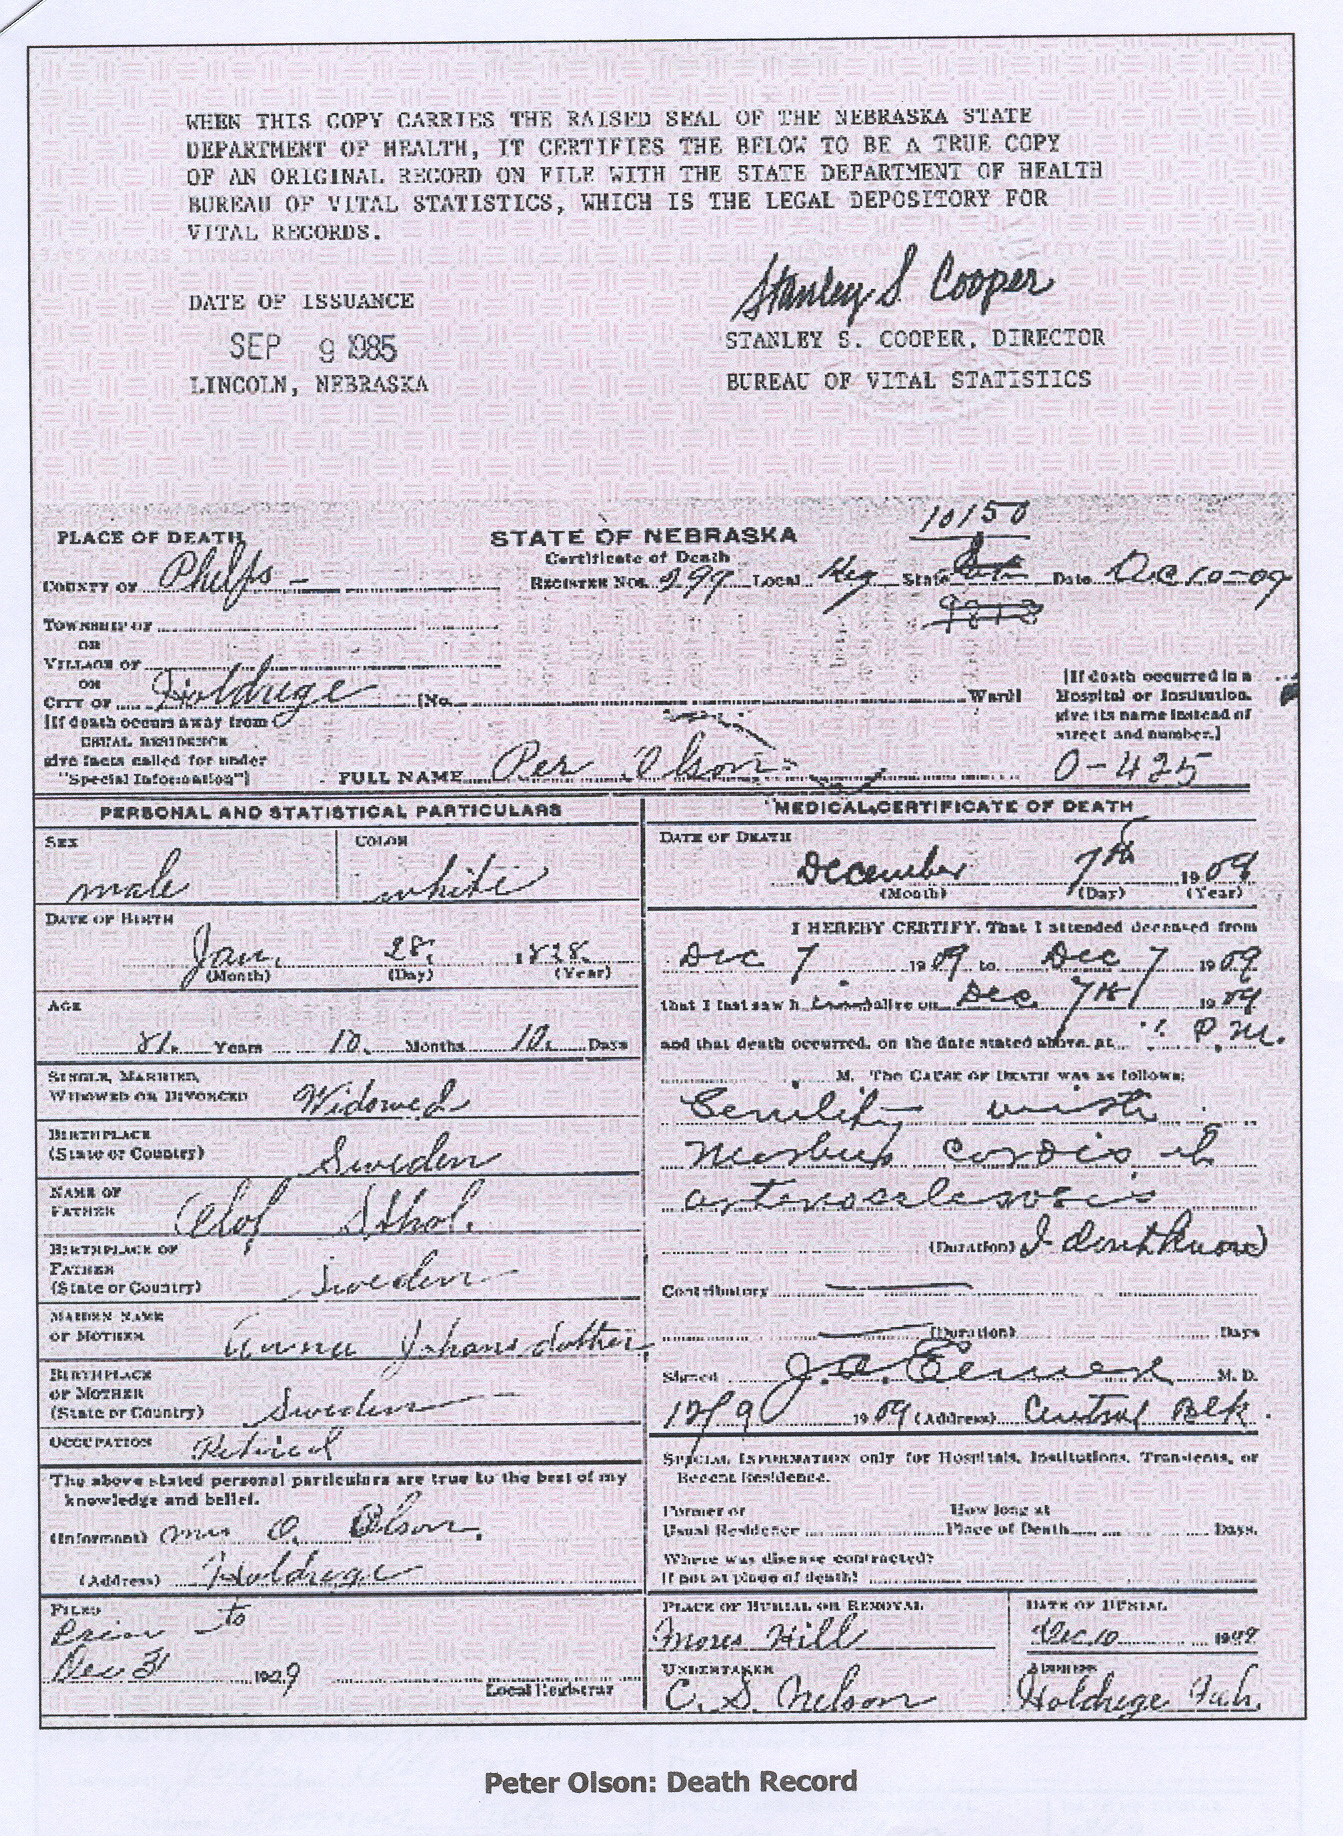 WHEN THIS COPY CARRIES THE RAISED SEAL OF THE NEBRASKA STATE
DEPARTMENT OF HEALTH, IT CERTIFIES THE BELOW TO BE A TRUE COPY
OF AN ORIGINAL RECORD ON FILE WITH THE STATE DEPARTMENT OF HEALTH
BUREAU OF VITAL STATISTICS, WHICH IS THE LEGAL DEPOSITORY FOR
VITAL RECORDS.
Stanley S. Cooper
DATE OF ISSUANCE
SEP 9 1985
LINCOLN, NEBRASKA
STANLEY S. COOPER, DIRECTOR
BUREAU OF VITAL STATISTICS
10150
PLACE OF DEATH
STATE OF NEBRASKA
Certificate of Death
COUNTY OF Phelps
REGISTER NOS. 299 Local Reg State Date Dec 10-09
TOWNSHIP OF
OR
VILLAGE OF
OR
CITY OF Holdrege (No. Ward)
[If death occurs away from
USUAL RESIDENCE
give facts called for under
"Special Information"]
[If death occurred in a
Hospital or Institution,
give its name instead of
street and number.]
FULL NAME Per Olson
0-425
PERSONAL AND STATISTICAL PARTICULARS
SEX
male
COLOR
white
DATE OF BIRTH
Jan. 28. 1828.
(Month) (Day) (Year)
AGE
81. Years 10. Months 10. Days
SINGLE, MARRIED,
WIDOWED OR DIVORCED Widowed
BIRTHPLACE
(State or Country) Sweden
NAME OF
FATHER Olof Sthol.
BIRTHPLACE OF
FATHER
(State or Country) Sweden
MAIDEN NAME
OF MOTHER Anna Johansdotter
BIRTHPLACE
OF MOTHER
(State or Country) Sweden
OCCUPATION Retired
The above stated personal particulars are true to the best of my
knowledge and belief.
(Informant) Mrs O. Olson.
(Address) Holdrege
FILED
Prior to
Dec 31 1909
Local Registrar
MEDICAL CERTIFICATE OF DEATH
DATE OF DEATH
December 7th 1909
(Month) (Day) (Year)
I HEREBY CERTIFY, That I attended deceased from
Dec 7 1909 to Dec 7 1909
that I last saw h alive on Dec. 7th 1909
and that death occurred, on the date stated above, at P.M.
M. The CAUSE OF DEATH was as follows:
Senility with
Morbus cordis
arteriosclerosis
(Duration) I dont know
Contributory
(Duration) Days
Signed J. A. M. D.
12/9 1909 (Address) Central Blk.
SPECIAL INFORMATION only for Hospitals, Institutions, Transients, or
Recent Residence.
Former or
Usual Residence
How long at
Place of Death Days.
Where was disease contracted?
If not at place of death?
PLACE OF BURIAL OR REMOVAL
Moses Hill
DATE OF BURIAL
Dec. 10 1909
UNDERTAKER
C. S. Nelson
ADDRESS
Holdrege Neb.
Peter Olson: Death Record